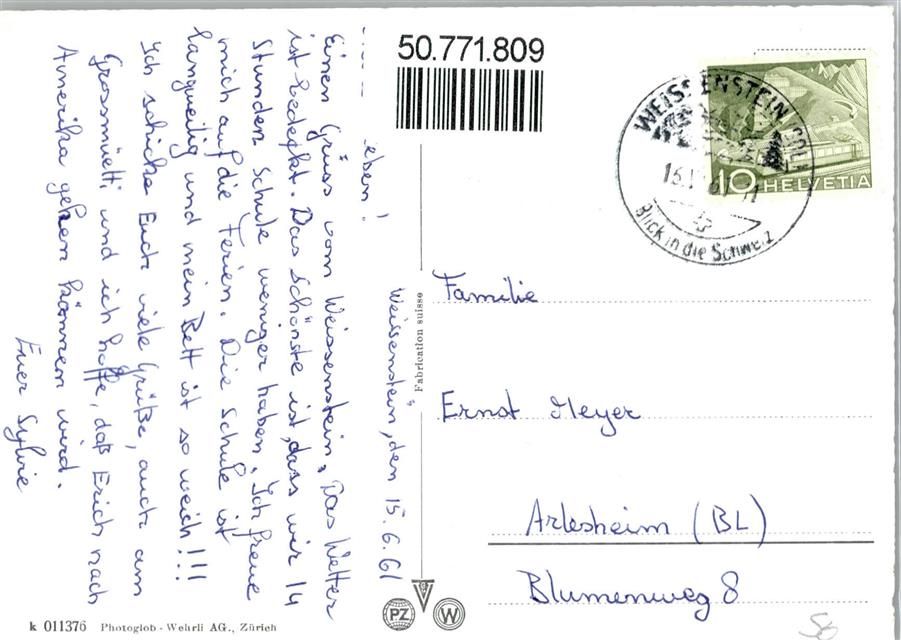 50.771.809
WEISSENSTEIN
10 HELVETIA
Blick in die Schweiz
Weissenstein, den 15.6.61
eben!
Einen Grüss vom Weissenstein. Das Wetter
ist bedeckt. Das schönste ist, dass wir 14
Stunden Schule weniger haben. Ich freue
mich auf die Ferien. Die Schule ist
langweilig und mein Bett ist so weich!!!
Ich schicke Euch viele Grüße, auch am
Grossmüetti und ich hoffe, daß Erich nach
Amerika gehen können wird.
Euer Sylvie
"Fabrication suisse
Familie
Ernst Meyer
Arlesheim (BL)
Blumenweg 8
PZ W
k 011376 Photoglob - Wehrli AG., Zürich